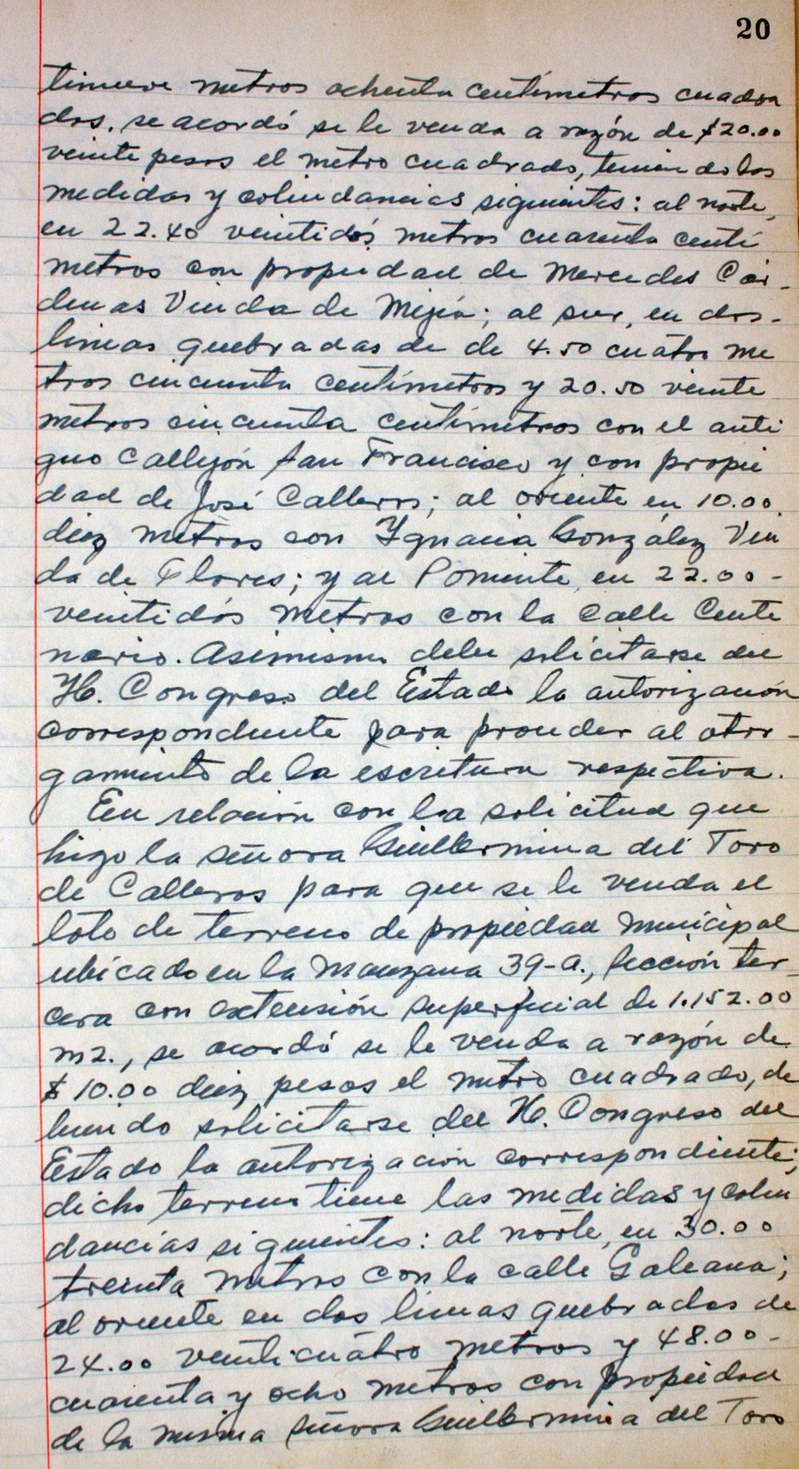 20
tinueve metros ochenta centímetros cuadra
dos, se acordó se le venda a razón de $20.00
veinte pesos el metro cuadrado, teniendo las
medidas y colindancias siguientes: al norte,
en 22.40 veintidós metros cuarenta centí
metros con propiedad de Mercedes Cár-
denas Viuda de Mejía; al sur, en dos-
lineas quebradas de de 4.50 cuatro me
tros cincuenta centímetros y 20.50 veinte
metros cincuenta centímetros con el anti
guo Callejón San Francisco y con propie
dad de José Calleros; al oriente en 10.00
diez metros con Ygnacia González Viu
da de Flores; y al Poniente, en 22.00-
veintidós metros con la calle Cente
nario. Asimismo debe solicitarse del
H. Congreso del Estado la autorización
correspondiente para proceder al otor-
gamiento de la escritura respectiva.
En relación con la solicitud que
hizo la señora Guillermina del Toro
de Calleros para que se le venda el
lote de terreno de propiedad municipal
ubicado en la Manzana 39-a., Sección ter-
cera con extensión superficial de 1.152.00
m2., se acordó se le venda a razón de
$10.00 diez pesos el metro cuadrado, de
biendo solicitarse del H. Congreso del
Estado la autorización correspondiente;
dicho terreno tiene las medidas y colin
dancias siguientes: al norte, en 30.00
treinta metros con la calle Galeana;
al oriente en dos lineas quebradas de
24.00 veinticuatro metros y 48.00-
cuarenta y ocho metros con propiedad
de la misma señora Guillermina del Toro